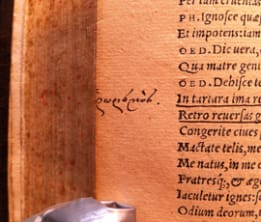 Per iam cruentas
PH. Ignosce quæ
Et impotentiam
OED. Dic vera,
Qua matre geni
OED. Dehisce te
In tartara ima re
Retro reuersas g
Congerite ciues
Mactate telis, me
Me natus, in me c
Fratresq́;, & æg
Iaculetur ignes:
Odium deorum,